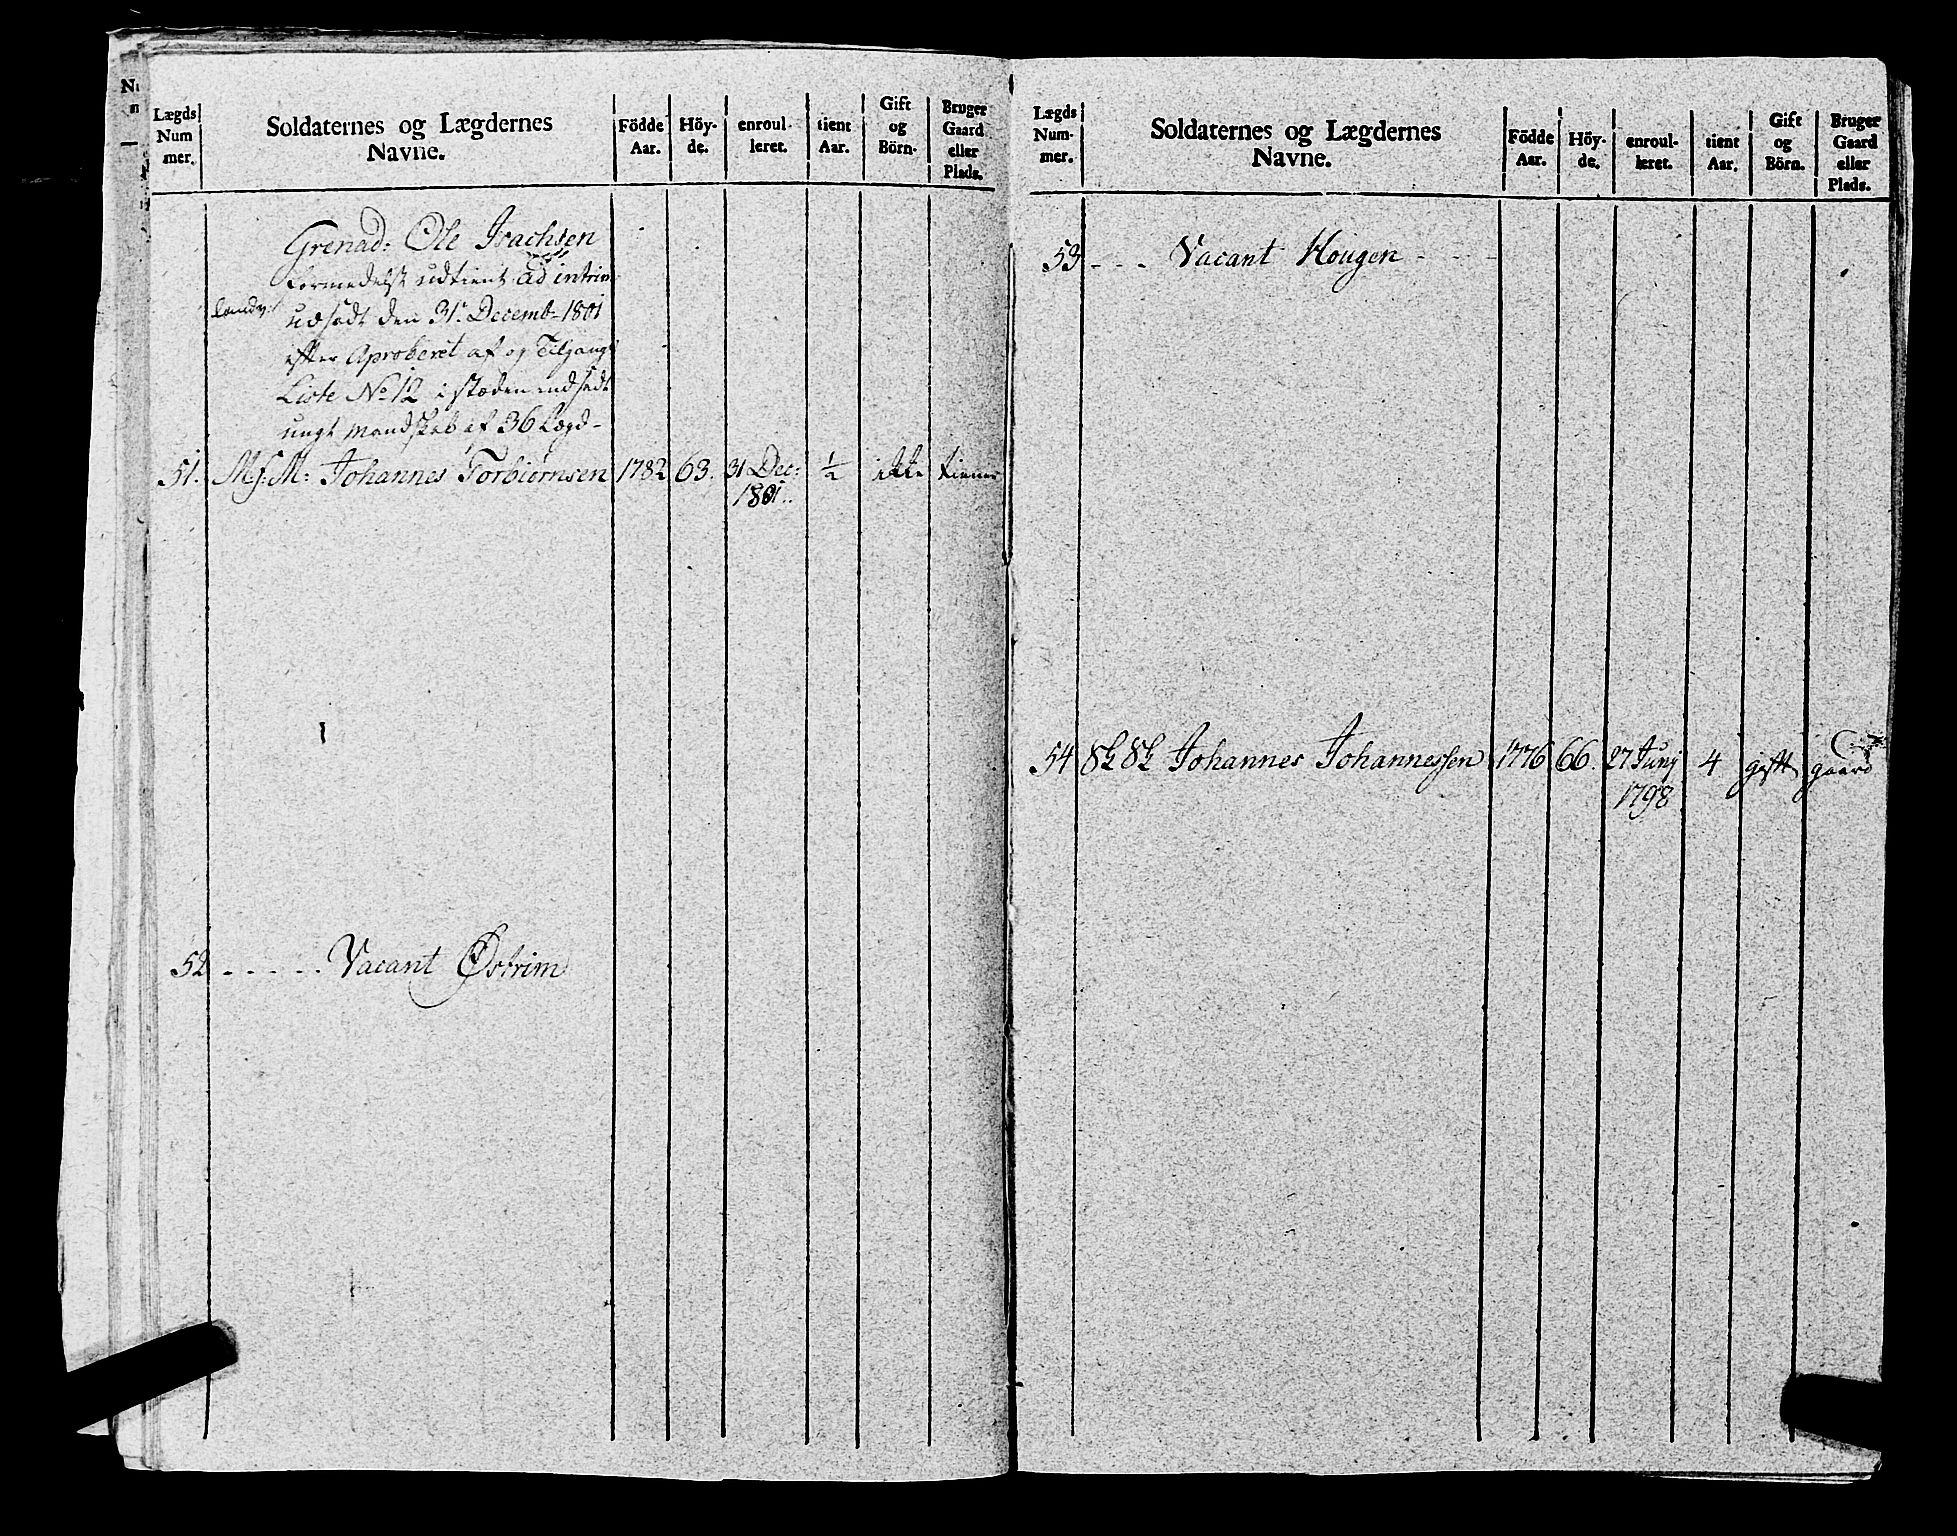 Lægds Num mer.
Soldaternes og Lægdernes Navne.
Födde Aar.
Höy- de.
enroul- leret.
tient Aar.
Gift og Börn.
Bruger Gaard eller Plads.
Grenad: Ole Isachsen
formedelst udtient ad intrim
udsadt den 31. Decemb- 1801
efter Aproberet af og Tilgangs
Liste No 12 i stæden indsadt
ungt Mandskab af 36 Lægd-
51. M:M: Johannes Torbiørnsen 1782 63. 31 Dec: 1/2 ikke tiener
1801..
52 - - - - - Vacant Østrim
Lægds Num- mer.
Soldaternes og Lægdernes Navne.
Födde Aar.
Höy- de.
enroul- leret.
tient Aar.
Gift og Börn.
Bruger Gaard eller Plads.
53 - - - Vacant Hougen - - -
54 Johannes Johannessen 1776 66. 27 Junj 4 gift gaard
1798